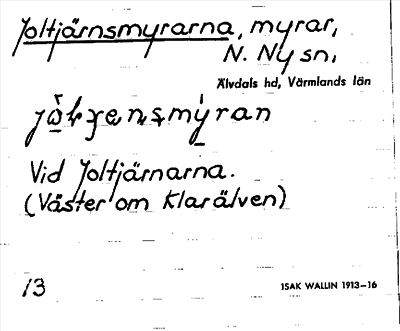 Joltjärnsmyrarna, myrar,
N. Ny sn.
Älvdals hd, Värmlands län
Vid Joltjärnarna.
(Väster om Klarälven)
13
ISAK WALLIN 1913–16